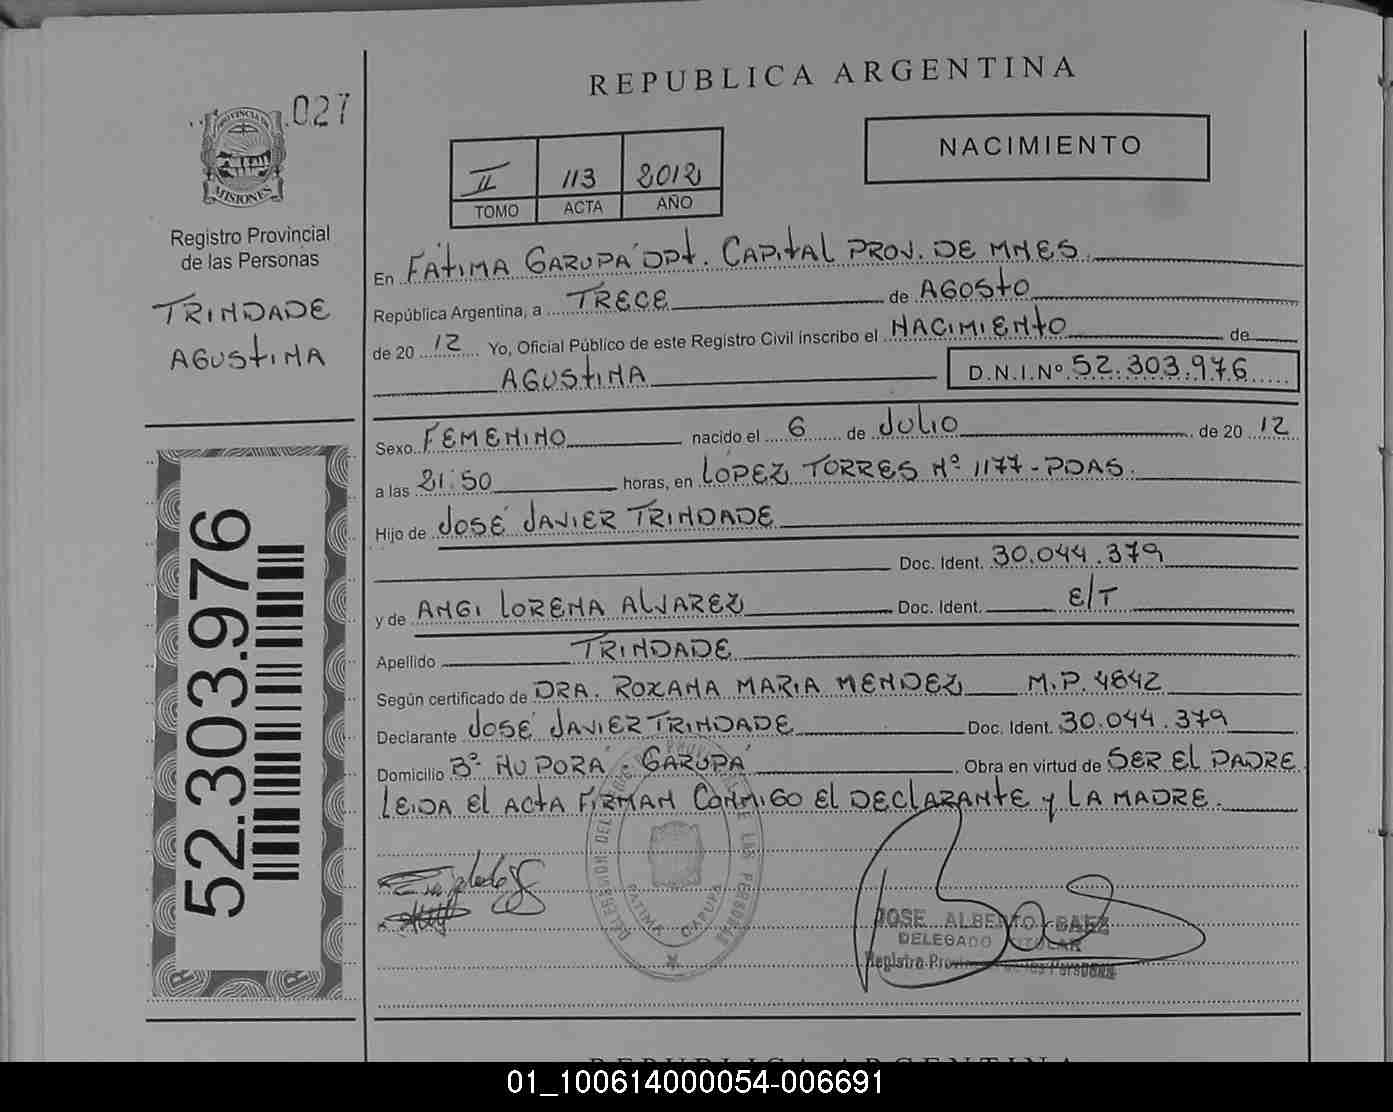 REPUBLICA ARGENTINA
027
PROVINCIA DE
MISIONES
Registro Provincial
de las Personas
TRINDADE
AGUSTINA
52.303.976
II 113 2012
TOMO ACTA AÑO
NACIMIENTO
En FÁTIMA GARUPÁ DPT. CAPITAL PROV. DE MNES.
República Argentina, a TRECE de AGOSTO
de 20 12 Yo, Oficial Público de este Registro Civil inscribo el NACIMIENTO de
AGUSTINA D.N.I.Nº 52.303.976
Sexo FEMENINO nacido el 6 de JULIO de 20 12
a las 21:50 horas, en LÓPEZ TORRES Nº 1177-PDAS.
Hijo de JOSÉ JAVIER TRINDADE
Doc. Ident. 30.044.379
y de ANGI LORENA ALVAREZ Doc. Ident. E/T
Apellido TRINDADE
Según certificado de DRA. ROXANA MARIA MENDEZ M.P. 4842
Declarante JOSÉ JAVIER TRINDADE Doc. Ident. 30.044.379
Domicilio Bº ÑU PORÁ - GARUPÁ Obra en virtud de SER EL PADRE
LEIDA El ACTA FIRMAN CONMIGO El DECLARANTE y LA MADRE.
JOSE ALBERTO BAEZ
DELEGADO TITULAR
Registro Provincial de las Personas
REPUBLICA ARGENTINA
01_100614000054-006691